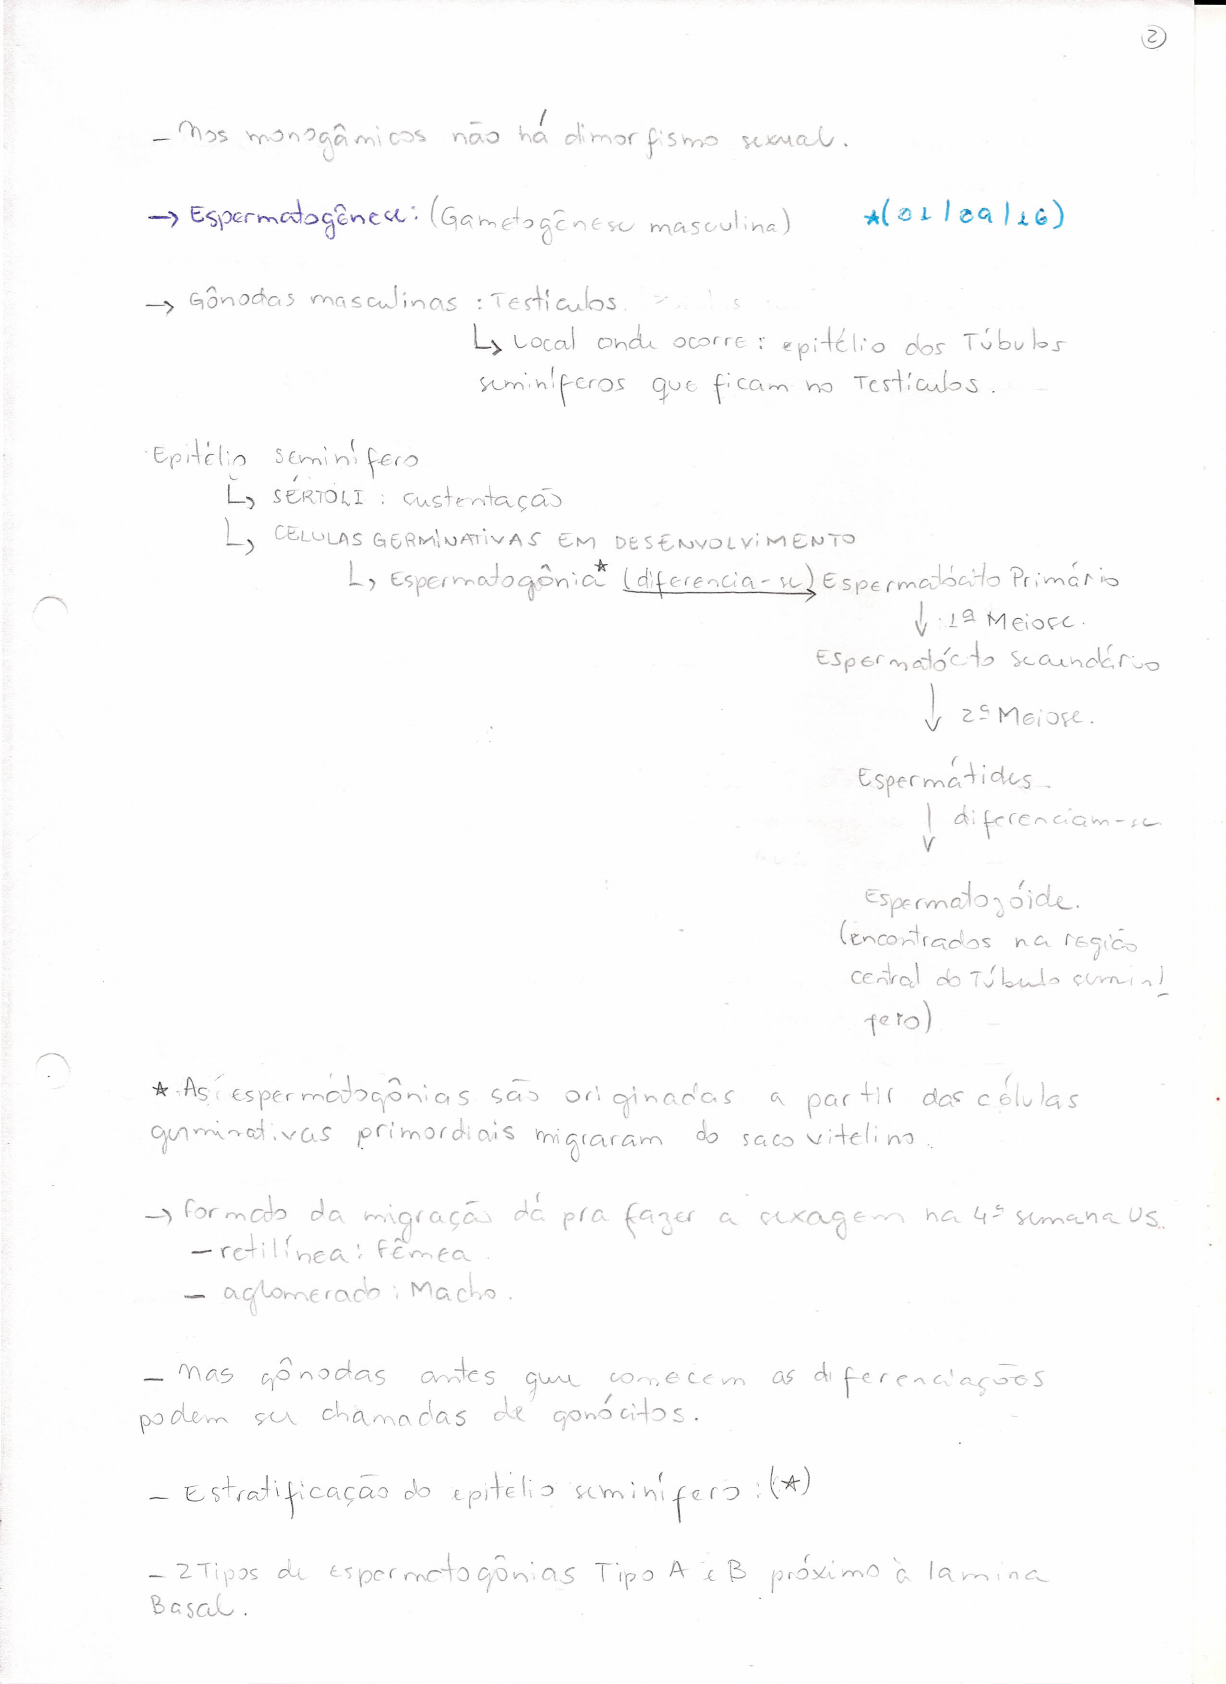 2
- Nos monogâmicos não há dimorfismo sexual.
→ Espermatogênese: (Gametogênese masculina) ★(01/09/16)
→ Gônodas masculinas : Testículos.
↳ Local onde ocorre : epitélio dos Túbulos
seminíferos que ficam no Testículos.
Epitélio seminífero
↳ SÉRTOLI : sustentação
↳ CÉLULAS GERMINATIVAS EM DESENVOLVIMENTO
↳ Espermatogônia★ (diferencia-se) Espermatócito Primário
↓ 1ª Meiose.
Espermatócito secundário
↓ 2ª Meiose.
Espermátides.
↓ diferenciam-se
Espermatozóide.
(encontrados na região
central do Túbulo seminí
fero)
★ As espermatogônias são originadas a partir das células
germinativas primordiais migraram do saco vitelino.
→ formato da migração dá pra fazer a sexagem na 4ª semana US.
- retilínea : Fêmea.
- aglomerado : Macho.
- Nas gônodas antes que comecem as diferenciações
podem ser chamadas de gonócitos.
- Estratificação do epitélio seminífero : (★)
- 2 Tipos de espermatogônias Tipo A e B próximo à lamina
Basal.